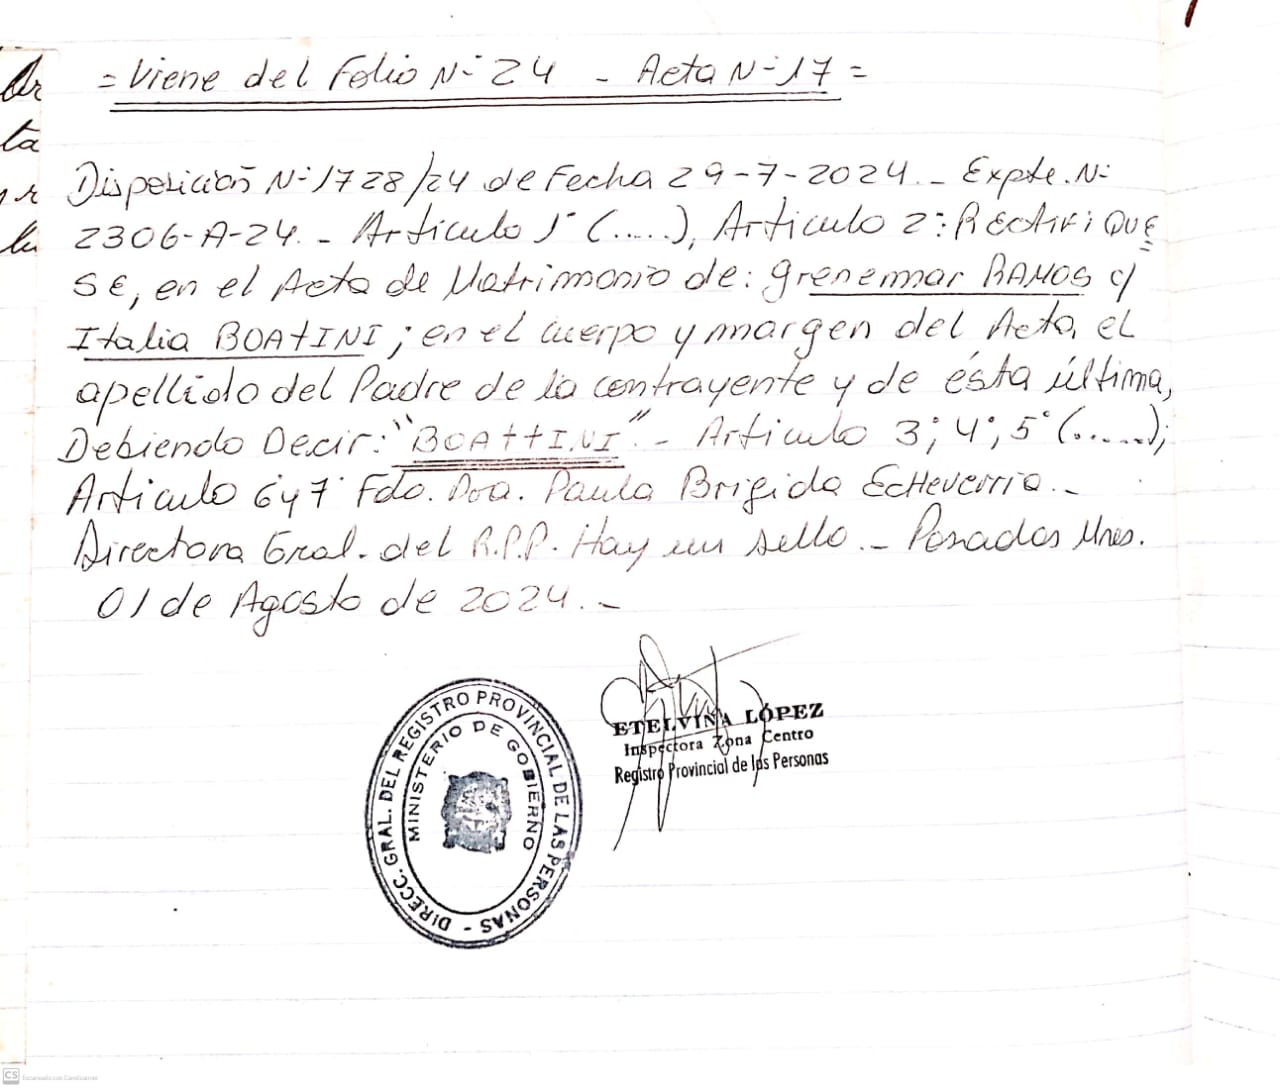 = Viene del Folio N-° 24 - Acta N-° 17 =
Disposición N-° 1728/24 de Fecha 29-7-2024.- Expte. N-°
2306-A-24.- Artículo 1° (.....), Artículo 2: RECtifiQUE
SE, en el Acta de Matrimonio de: grenenmar RAMOS c/
Italia BOAtINI; en el cuerpo y margen del Acta, el
apellido del Padre de la contrayente y de ésta última,
Debiendo Decir: "BOAttINI".- Artículo 3°, 4°, 5° (......);
Artículo 6 y 7° Fdo. Dra. Paula Brigida EcHeverria.-
Directora Gral. del R.P.P. Hay un sello.- Posadas Mnes.
01 de Agosto de 2024.-
DIRECC. GRAL. DEL REGISTRO PROVINCIAL DE LAS PERSONAS -
MINISTERIO DE GOBIERNO
ETELVINA LÓPEZ
Inspectora Zona Centro
Registro Provincial de las Personas
CS Escaneado con CamScanner